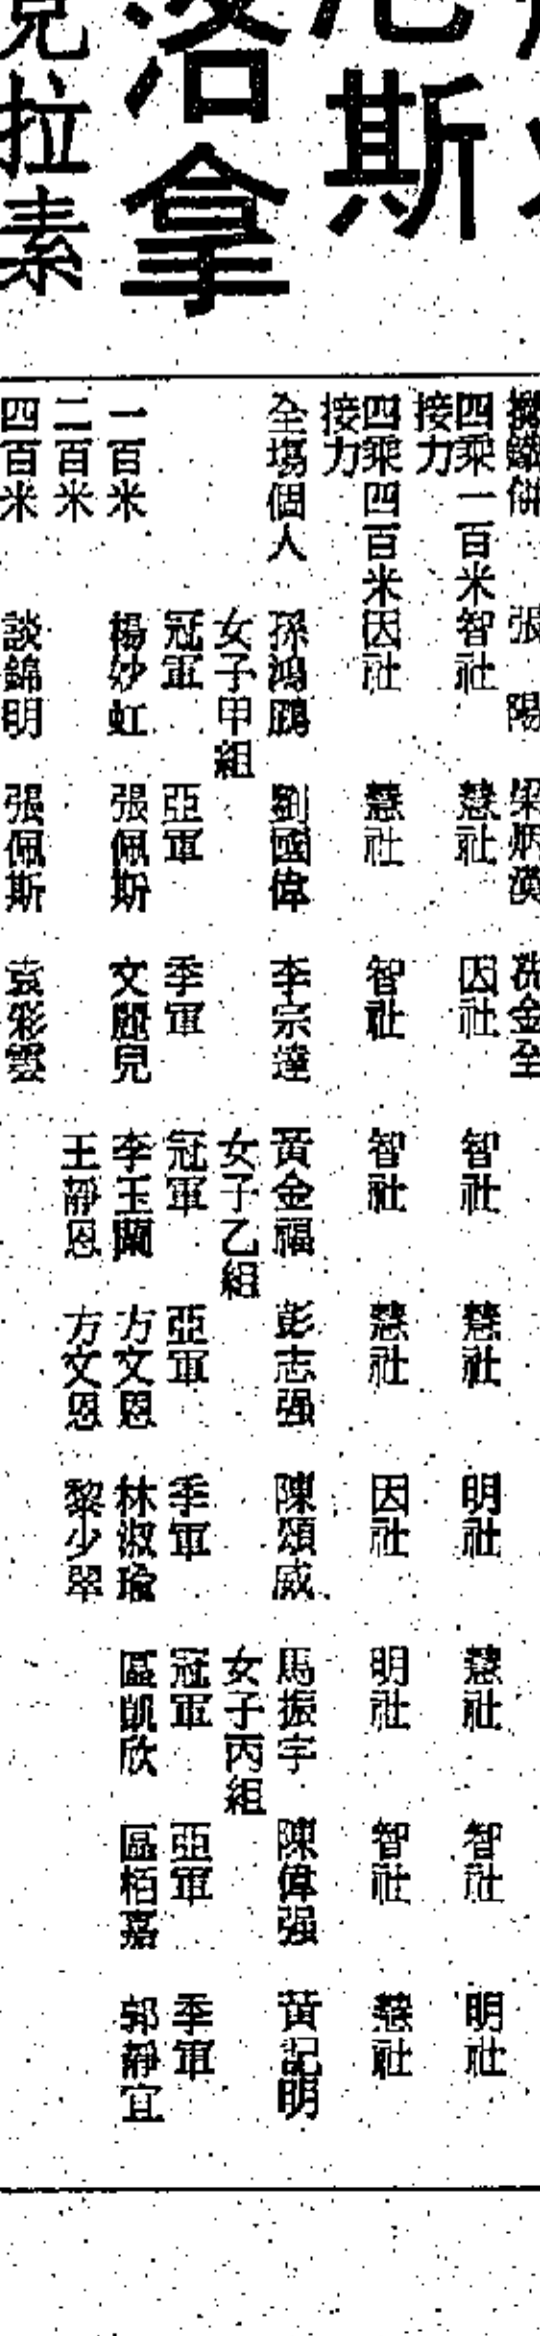 斯
拿
克拉素
張陽
四乘一百米接力 智社 慧社 因社 智社 慧社 明社 慧社 智社 明社
四乘四百米接力 因社 慧社 智社 智社 慧社 因社 明社 智社 慧社
全塲個人 孫鴻鵬 劉國偉 李宗達 黃金福 彭志强 陳頌威 馬振宇 陳偉强 黃記明
女子甲組 女子乙組 女子丙組
冠軍 亞軍 季軍 冠軍 亞軍 季軍 冠軍 亞軍 季軍
一百米 楊妙虹 張佩斯 文麗兒 李玉蘭 方文恩 林淑瑜 區凱欣 區栢嘉 郭靜宜
二百米 王靜恩 方文恩 黎少翠
四百米 談錦明 張佩斯 袁彩雲